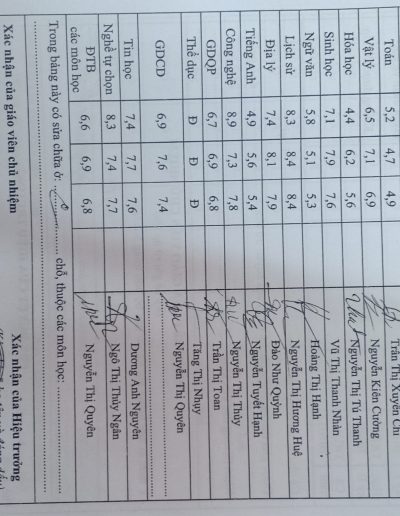 Toán 5,2 4,7 4,9 Trần Thị Xuyên Chi
Vật lý 6,5 7,1 6,9 Nguyễn Kiên Cường
Hóa học 4,4 6,2 5,6 Nguyễn Thị Tú Thanh
Sinh học 7,1 7,9 7,6 Vũ Thị Thanh Nhàn
Ngữ văn 5,8 5,1 5,3 Hoàng Thị Hạnh
Lịch sử 8,3 8,4 8,4 Nguyễn Thị Hương Huệ
Địa lý 7,4 8,1 7,9 Đào Như Quỳnh
Tiếng Anh 4,9 5,6 5,4 Nguyễn Tuyết Hạnh
Công nghệ 8,9 7,3 7,8 Nguyễn Thị Thủy
GDQP 6,7 6,9 6,8 Trần Thị Toan
Thể dục Đ Đ Đ Tăng Thị Nhụy
GDCD 6,9 7,6 7,4 Nguyễn Thị Quyên
Tin học 7,4 7,7 7,6 Dương Anh Nguyên
Nghề tự chọn 8,3 7,4 7,7 Ngô Thị Thùy Ngân
ĐTB
các môn học 6,6 6,9 6,8 Nguyễn Thị Quyên
Trong bảng này có sửa chữa ở: chỗ, thuộc các môn học:
Xác nhận của giáo viên chủ nhiệm Xác nhận của Hiệu trưởng